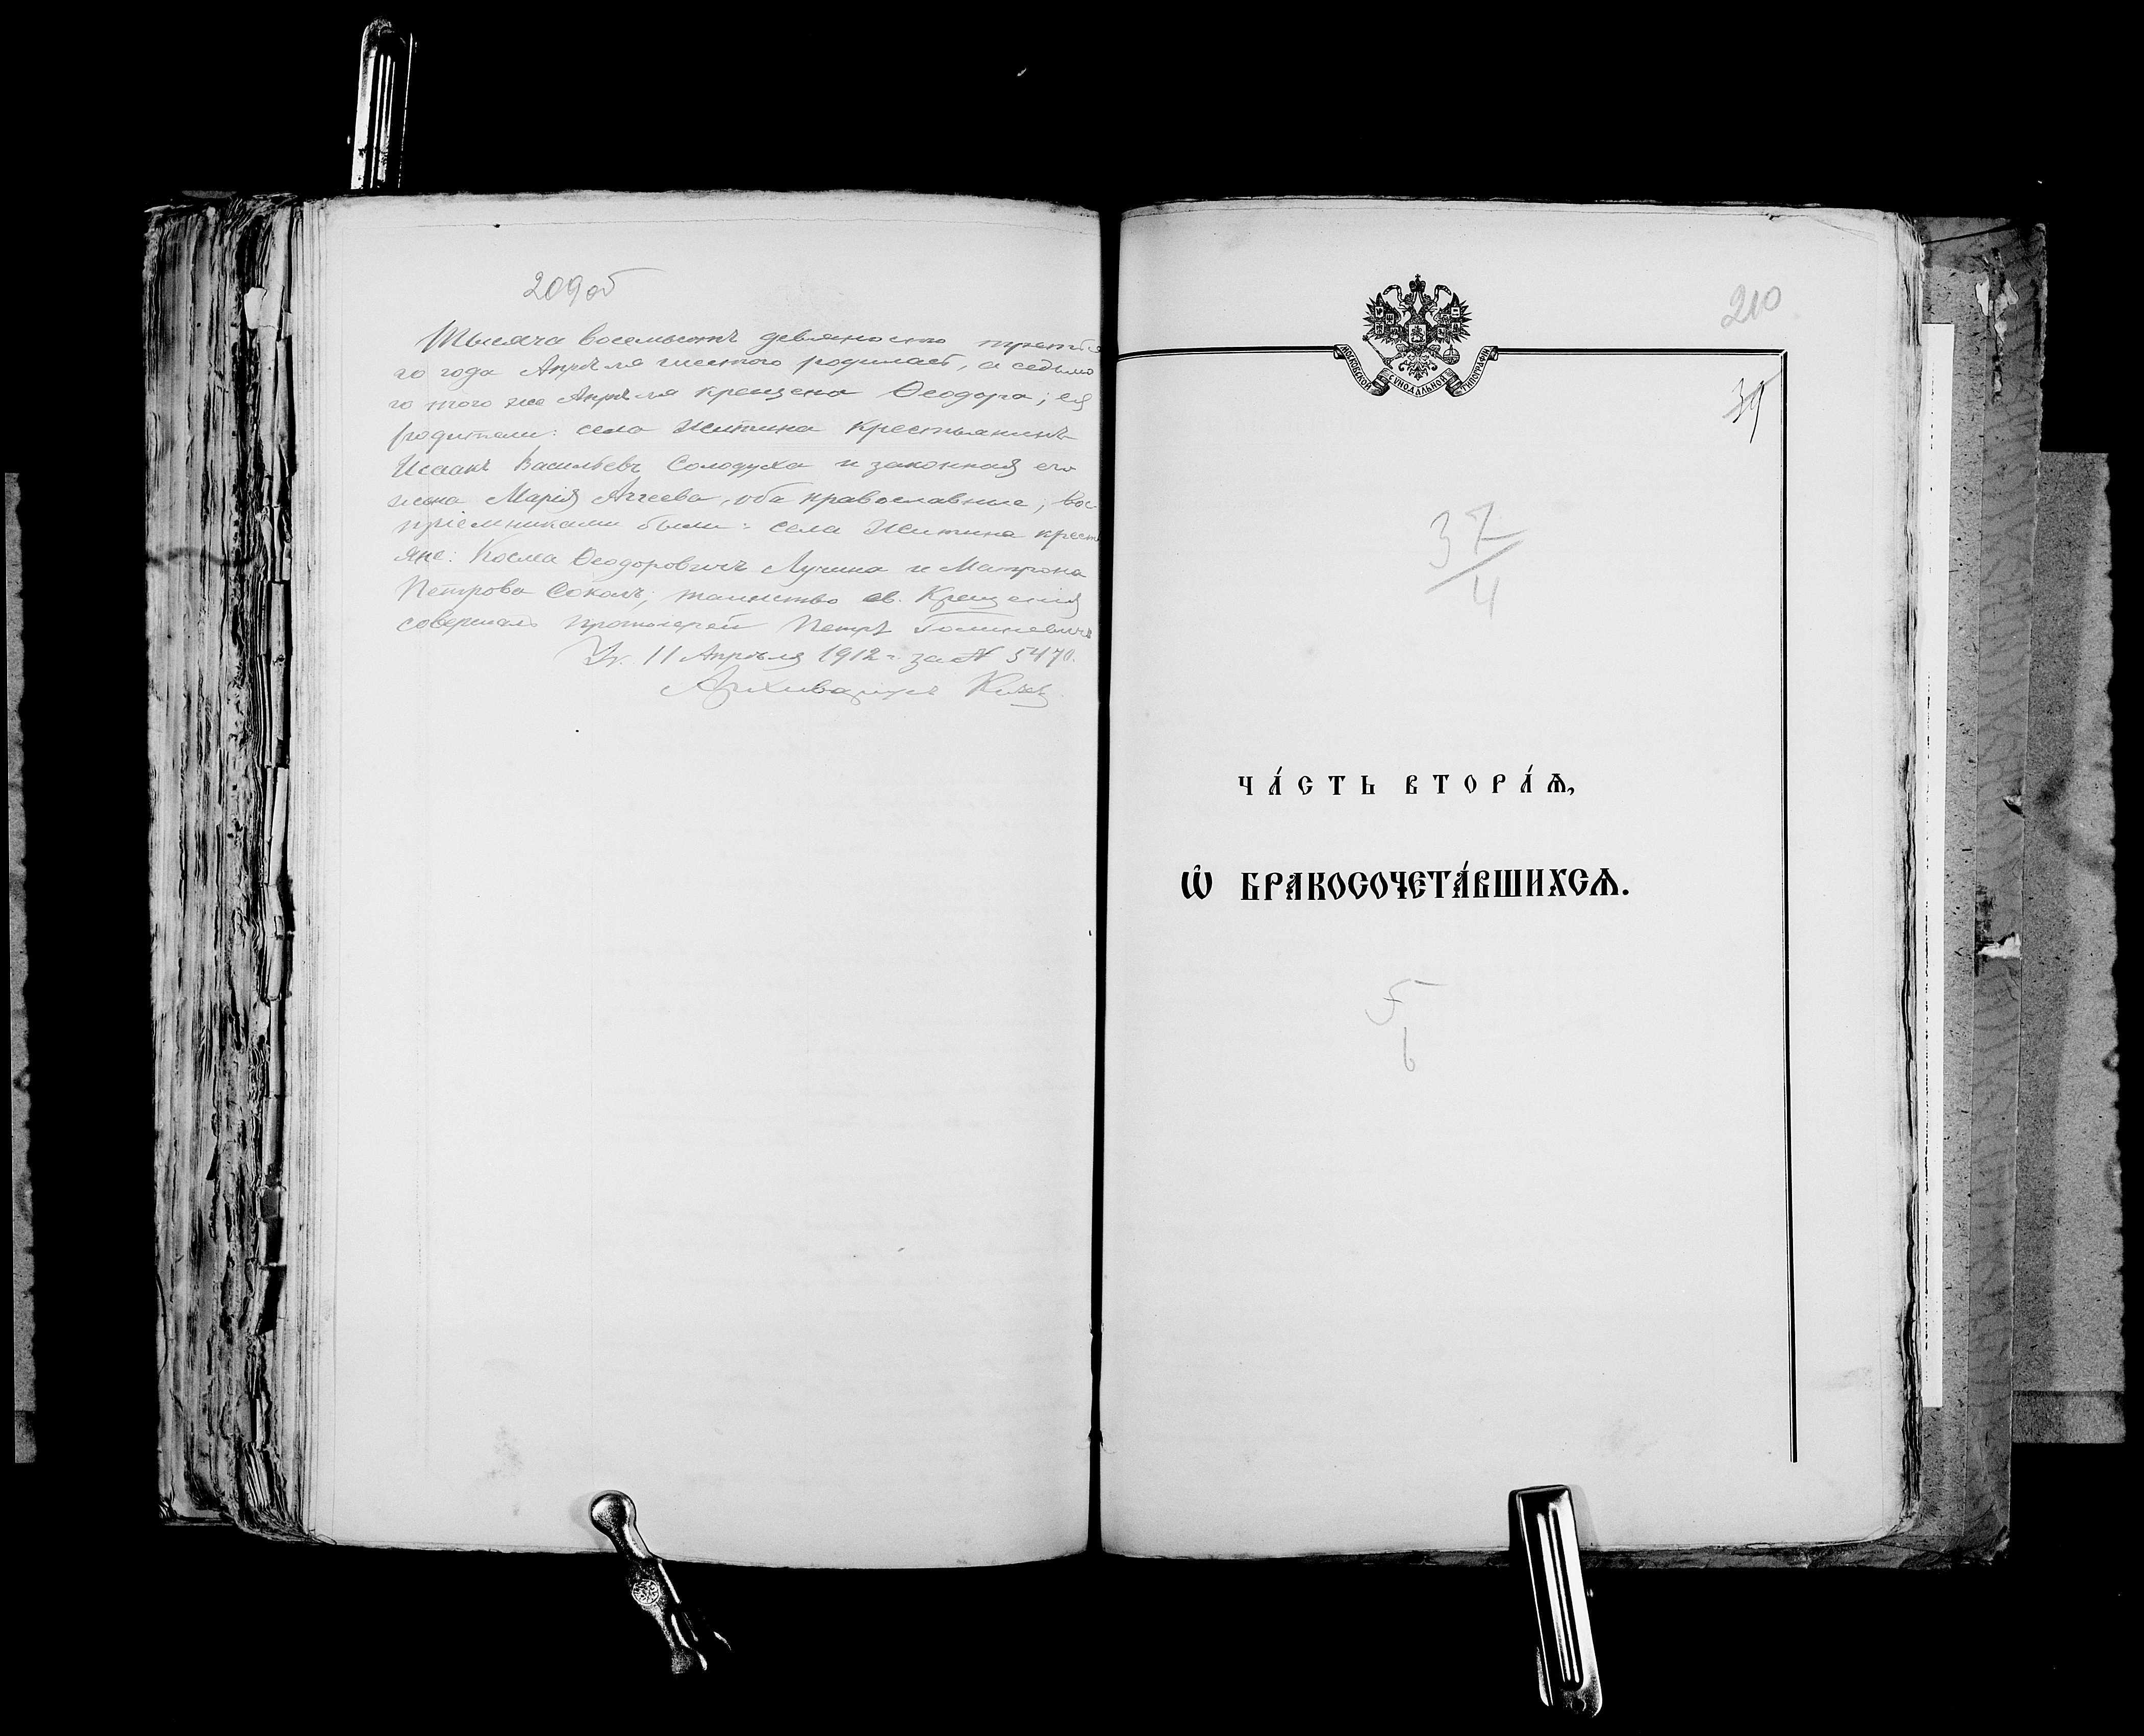 209об
Тысяча восемьсотъ девяносто третья
го года Апрѣля шестого родилась, а седьмо
го того же Апрѣля крещена Ѳеодора; ея
родители: села Житина крестьянинъ
Исаакъ Васильевъ Солодуха и законная его
жена Марія Аггеева, оба православные; вос
пріемниками были: села Житина крестъ
яне: Косма Ѳеодоровичъ Лучина и Матрона
Петрова Соколъ; таинство св. Крещенія
совершалъ Протоіерей Петръ
Ук. 11 Апрѣля 1912 г. за № 5470.
Архиваріусъ
210
МОСКОВСКОЙ СѴНОДАЛЬНОЙ ТИПОГРАФІИ
39
37
4
ЧА́СТЬ ВТОРА́Ѧ,
Ѡ҆ БРАКОСОЧЕТА́ВШИХСѦ.
5
6